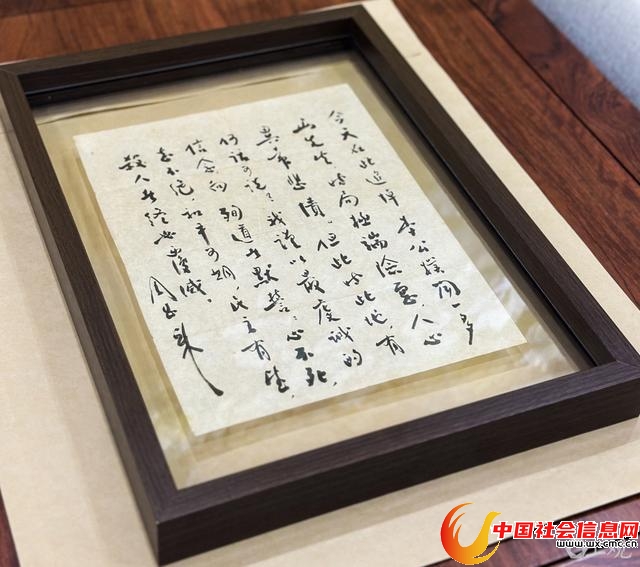 今天在此追悼李公樸闻一多
两先生时局极端险惡,人心
異常悲憤,但此时此地,有
何話可说?我谨以最虔诚的
信念向殉道者默誓:心不死,
志不绝,和平可期,民主有望,
殺人者终必覆滅。周恩来
中国社会信息网
www.wx.cmc.cn